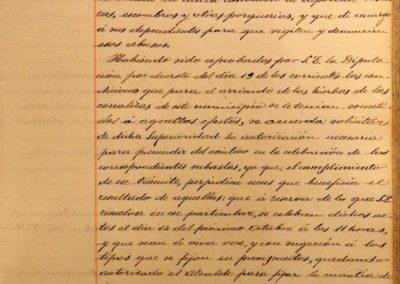 ras, escombros y otras porquerias, y que de encargo
á sus dependientes para que vigilen y denuncien
esos abusos.
Habiendo sido aprobadas por S. E. la Diputa-
ción por decreto del dia 19 de los corrientes las con-
diciones que para el arriendo de las hierbas de las
corralizas de este municipio se le tenian someti-
das á aquellos efectos, se acuerda solicitar
de dicha Superioridad la autorización necesaria
para prescindir del en la celebración de las
correspondientes subastas, ya que, el cumplimiento
de ese trámite, perjudica mas que beneficia el
resultado de aquellas: que á reserva de lo que S. E.
resuelva en ese particular, se celebren dichos ac-
tos el dia 14 del próximo Octubre á las 11 horas,
y que sean á viva voz, y con sugeción á los
tipos que se fijan en presupuestos, quedando
autorizado el Alcalde para fijar la cuantia de